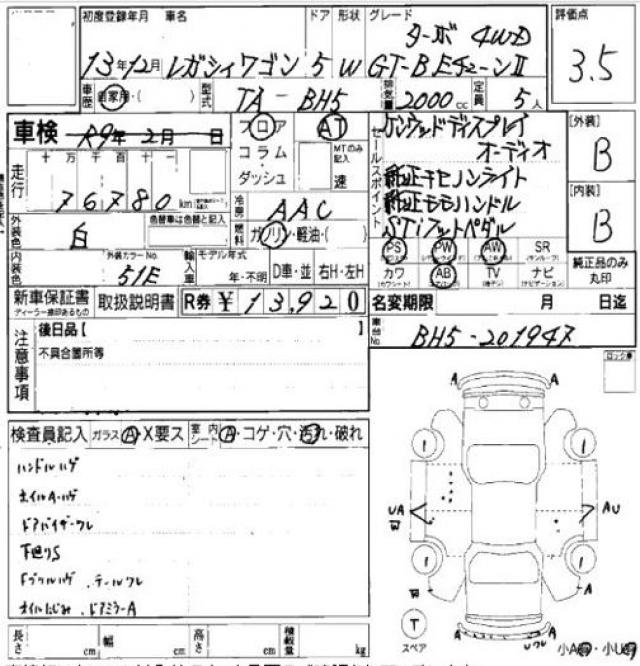 初度登録年月 車名 ドア 形状 グレード 評価点
13年12月 レガシィワゴン 5 W ターボ 4WD
GT-B EチューンII 3.5
車歴 自家用・( ) 型式 TA-BH5 排気量 2000cc 定員 5人
車検 R9年 2月 日 フロア AT セールスポイント ケンウッドディスプレイ [外装]
コラム MTのみ記入 オーディオ B
走行 十万 千百十一 ダッシュ 速 純正キセノンライト
76780 km 冷房 AAC 純正モモハンドル [内装]
外装色 白 色替車は色替と記入 燃料 ガソリン・軽油・( ) STiフットペダル B
内装色 外装カラーNo. 51E 輸入車 モデル年式 年・不明 D車・並 右H・左H
PS PW AW SR
カワ AB TV ナビ 純正品のみ丸印
新車保証書 取扱説明書 R券 ¥13,920 名変期限 月 日迄
ディーラー捺印あるもの
注意事項 後日品【 】 車台No. BH5-201947
不具合箇所等 ロック車
検査員記入 ガラス A・X要ス 室内シート A・コゲ・穴・汚れ・破れ
ハンドルハゲ
ホイルA・ハゲ
ドアバイザーワレ
下廻りS
Fグリルハゲ、テールワレ
オイルにじみ、ドアミラーA
A A
1 1
UA AU
1 1
A A
T
スペア Uワレ 小A・小U
長さ cm 幅 cm 高さ cm 積載量 kg